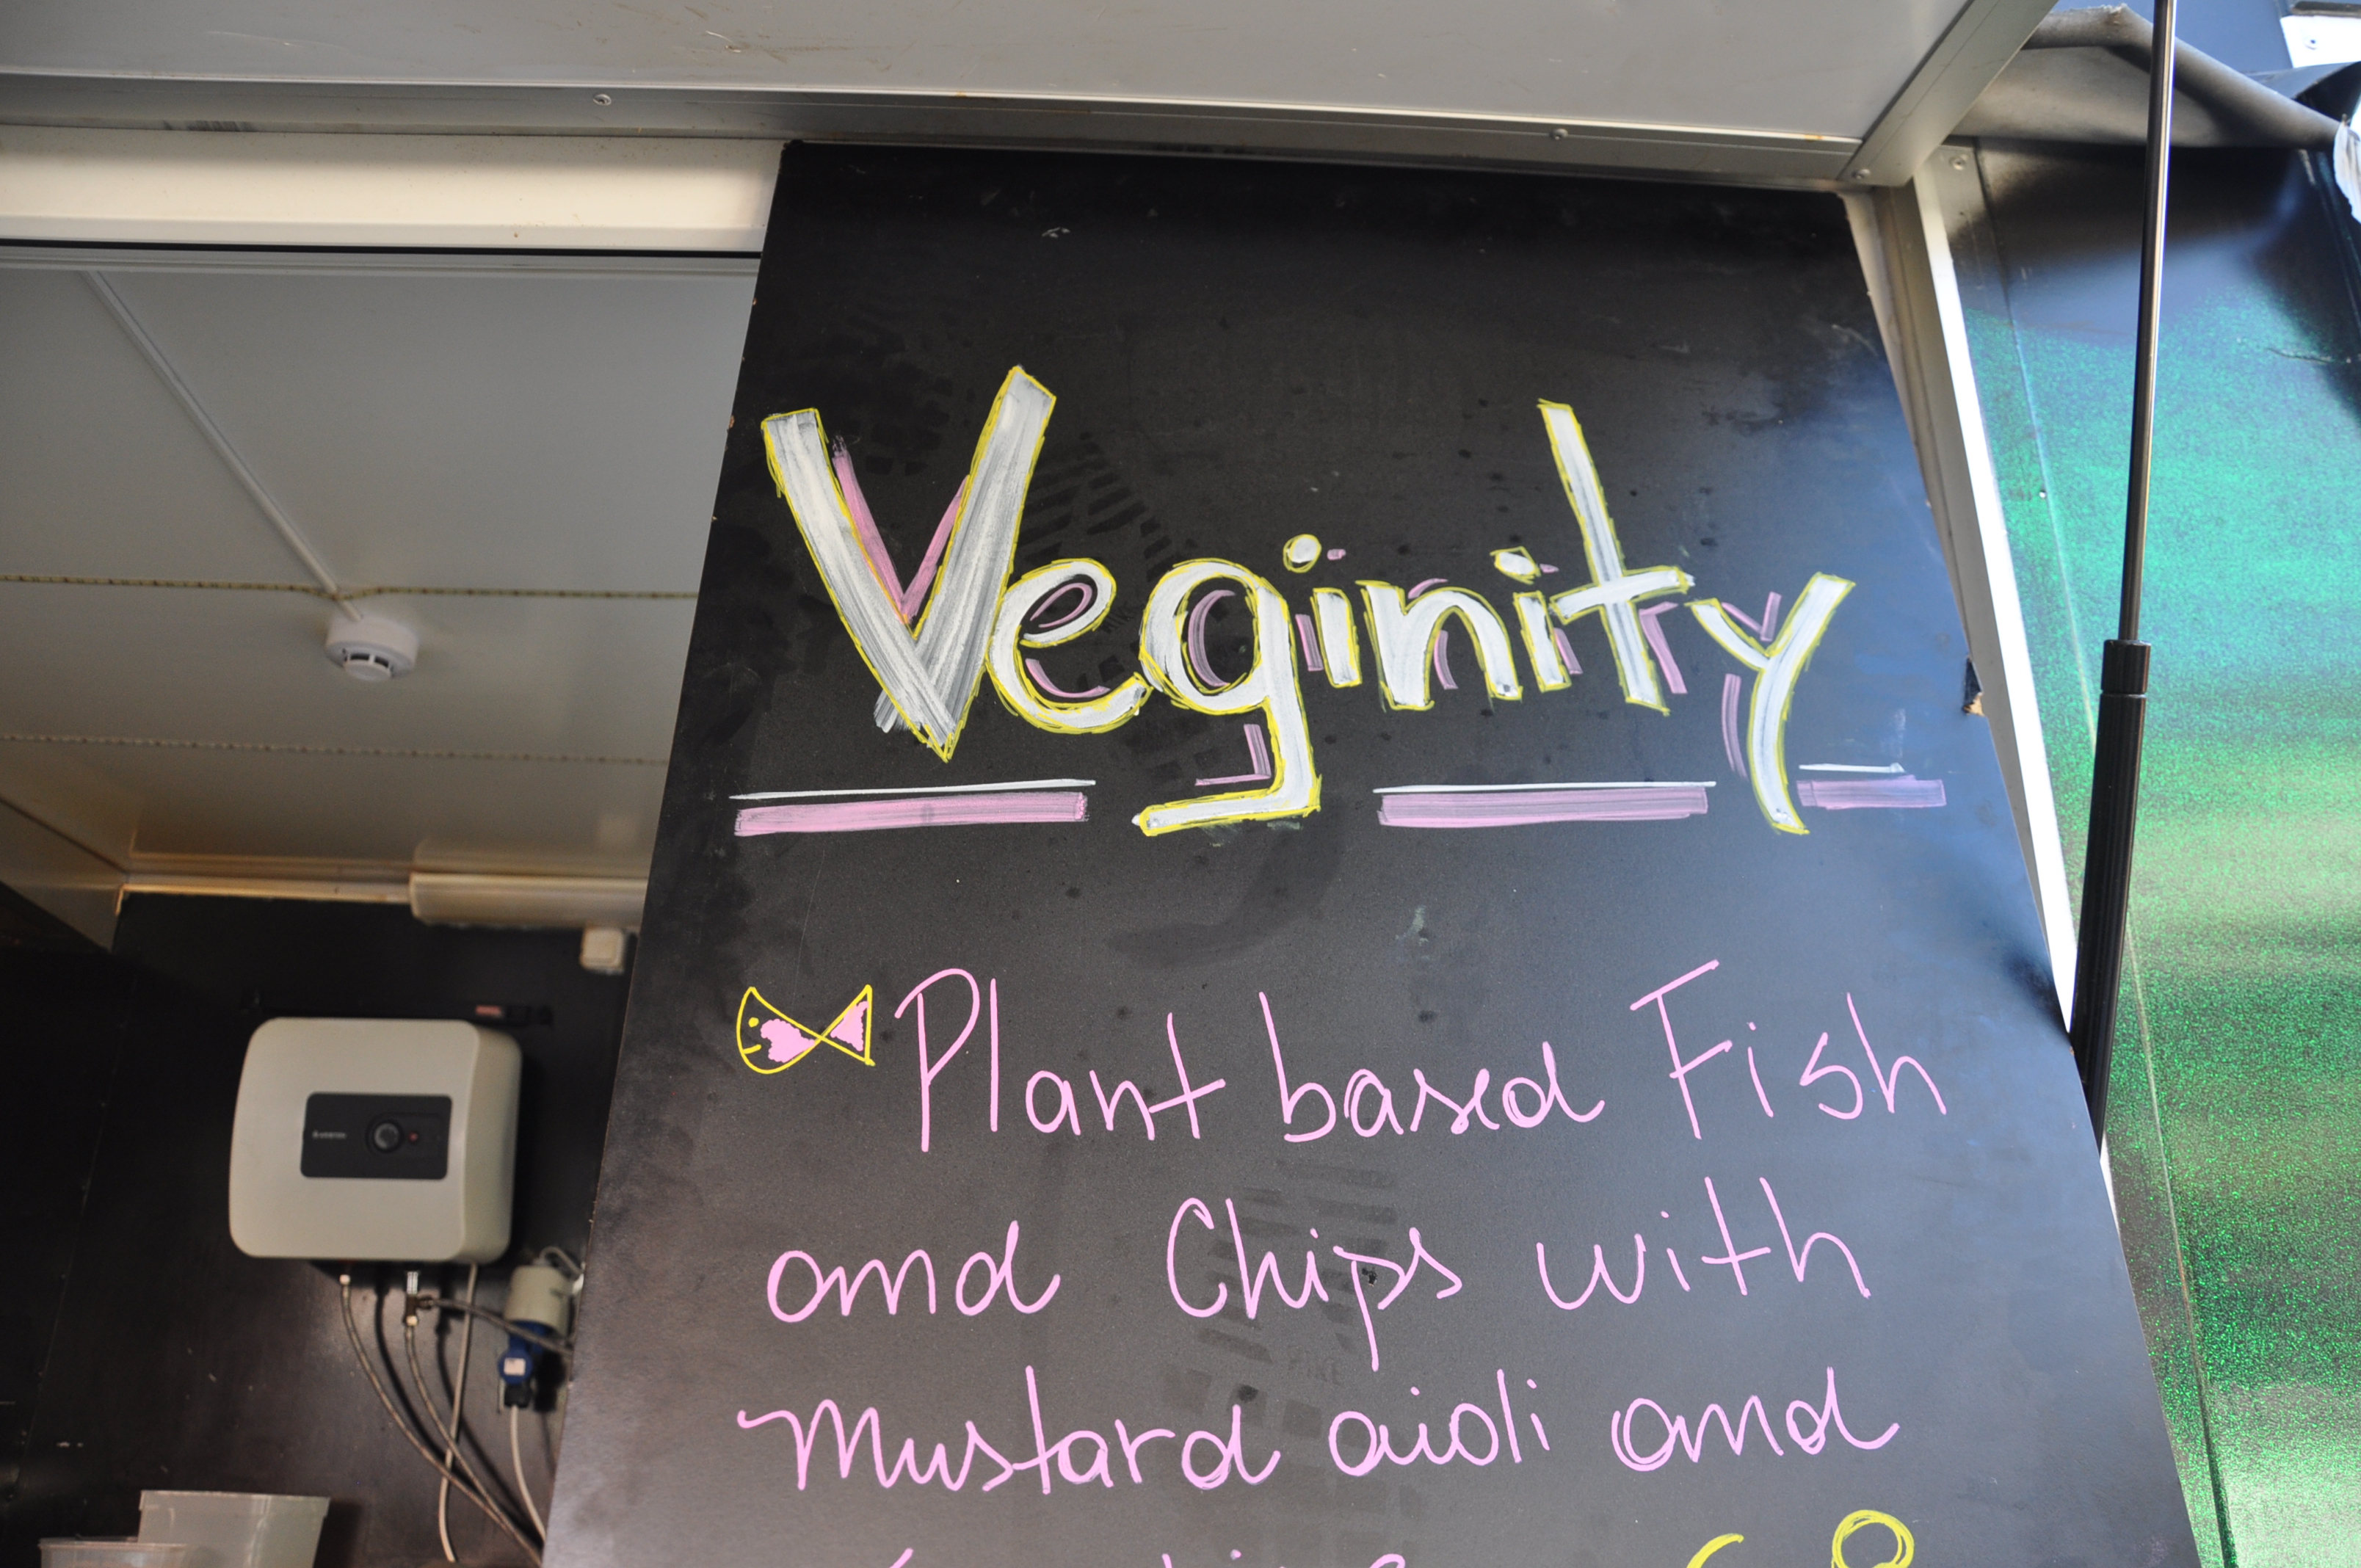 Veginity
Plant based Fish
and Chips with
Mustard aioli and